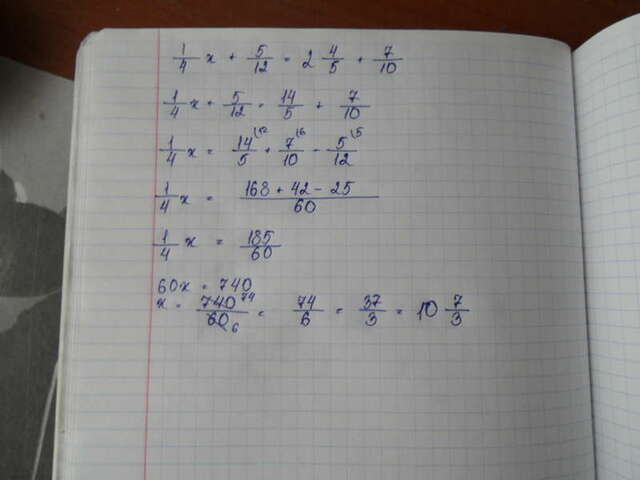 1/4 x + 5/12 = 2 4/5 + 7/10
1/4 x + 5/12 = 14/5 + 7/10
1/4 x = 14/5 (12 + 7/10 (6 - 5/12 (5
1/4 x = 168 + 42 - 25 / 60
1/4 x = 185/60
60x = 740
x = 740 74 / 60 6 = 74/6 = 37/3 = 10 7/3